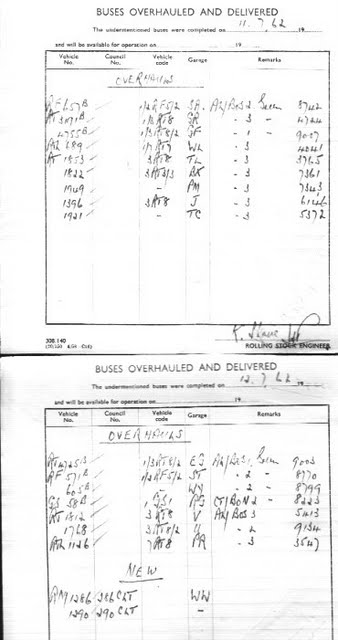 BUSES OVERHAULED AND DELIVERED
The undermentioned buses were completed on 11.7.62 19
and will be available for operation on 19
Vehicle No. Council No. Vehicle code Garage Remarks
OVERHAULS
RF 657B 1/2RF5/2 SA. AL/BOS2 Green 3742
1/3RT8 GR - 3 - 4724
4755B 1/3RT8/2 GF - 1 - 9007
689 WL - 3 4041
RT 1853 3RT8 TL - 3 3765
1822 3RT8/3 BK - 3 7361
1949 - PM - 3 7343
1396 3RT8 J - 3 6146
1921 - TC - 3 5372
ROLLING STOCK ENGINEER
BUSES OVERHAULED AND DELIVERED
The undermentioned buses were completed on 12.7.62 19
and will be available for operation on 19
Vehicle No. Council No. Vehicle code Garage Remarks
OVERHAULS
RT 4725B 1/3RT8/2 EG Green 9003
RF 571B 1/2RF5/2 ST - 2 - 8770
605B - WY - 2 - 8799
GS 58B 1GS1 CT/BON2 - 8223
RT 1812 3RT8 V AL/BOS3 5413
1768 3RT8/2 U - 2 9134
1126 7RT8 PR - 3 3547
NEW
RM 1286 286CLT WW
1290 290CLT -